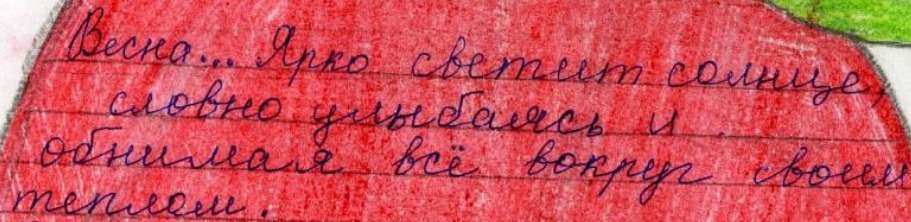 Весна... Ярко светит солнце,
словно улыбаясь и
обнимая всё вокруг своим
теплом.